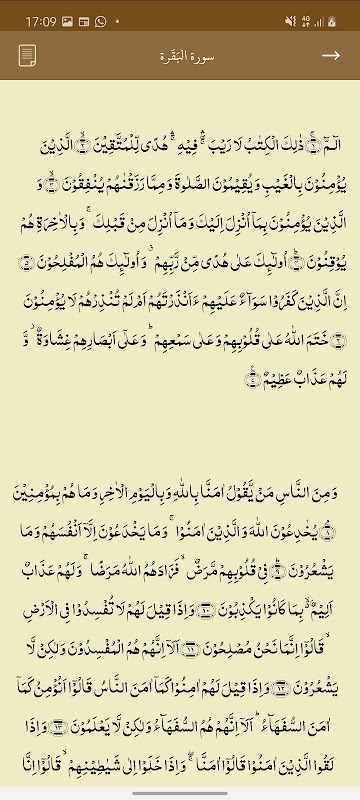 17:09
سورة البَقَرة
الٓمّٓ ۚ﴿۱﴾ ذٰلِكَ الْكِتٰبُ لَا رَيْبَ ۛۚ فِيْهِ ۛۚ هُدًى لِّلْمُتَّقِيْنَ ۙ﴿۲﴾ الَّذِيْنَ
يُؤْمِنُوْنَ بِالْغَيْبِ وَيُقِيْمُوْنَ الصَّلٰوةَ وَمِمَّا رَزَقْنٰهُمْ يُنْفِقُوْنَ ۙ﴿۳﴾ وَ
الَّذِيْنَ يُؤْمِنُوْنَ بِمَآ اُنْزِلَ اِلَيْكَ وَمَآ اُنْزِلَ مِنْ قَبْلِكَ ۚ وَبِالْاٰخِرَةِ هُمْ
يُوْقِنُوْنَ ؕ﴿۴﴾ اُولٰٓئِكَ عَلٰى هُدًى مِّنْ رَّبِّهِمْ ۙ وَاُولٰٓئِكَ هُمُ الْمُفْلِحُوْنَ ﴿۵﴾
اِنَّ الَّذِيْنَ كَفَرُوْا سَوَآءٌ عَلَيْهِمْ ءَاَنْذَرْتَهُمْ اَمْ لَمْ تُنْذِرْهُمْ لَا يُؤْمِنُوْنَ
﴿۶﴾ خَتَمَ اللّٰهُ عَلٰى قُلُوْبِهِمْ وَعَلٰى سَمْعِهِمْ ؕ وَعَلٰٓى اَبْصَارِهِمْ غِشَاوَةٌ ۙ وَّ
لَهُمْ عَذَابٌ عَظِيْمٌ ﴿۷﴾
وَمِنَ النَّاسِ مَنْ يَّقُوْلُ اٰمَنَّا بِاللّٰهِ وَبِالْيَوْمِ الْاٰخِرِ وَمَا هُمْ بِمُؤْمِنِيْنَ
ۘ﴿۸﴾ يُخٰدِعُوْنَ اللّٰهَ وَالَّذِيْنَ اٰمَنُوْا ۚ وَمَا يَخْدَعُوْنَ اِلَّآ اَنْفُسَهُمْ وَمَا
يَشْعُرُوْنَ ؕ﴿۹﴾ فِيْ قُلُوْبِهِمْ مَّرَضٌ ۙ فَزَادَهُمُ اللّٰهُ مَرَضًا ۚ وَلَهُمْ عَذَابٌ
اَلِيْمٌۢ ۙ۬ بِمَا كَانُوْا يَكْذِبُوْنَ ﴿۱۰﴾ وَاِذَا قِيْلَ لَهُمْ لَا تُفْسِدُوْا فِى الْاَرْضِ
ۙ قَالُوْٓا اِنَّمَا نَحْنُ مُصْلِحُوْنَ ﴿۱۱﴾ اَلَآ اِنَّهُمْ هُمُ الْمُفْسِدُوْنَ وَلٰكِنْ لَّا
يَشْعُرُوْنَ ﴿۱۲﴾ وَاِذَا قِيْلَ لَهُمْ اٰمِنُوْا كَمَآ اٰمَنَ النَّاسُ قَالُوْٓا اَنُؤْمِنُ كَمَآ
اٰمَنَ السُّفَهَآءُ ؕ اَلَآ اِنَّهُمْ هُمُ السُّفَهَآءُ وَلٰكِنْ لَّا يَعْلَمُوْنَ ﴿۱۳﴾ وَاِذَا
لَقُوا الَّذِيْنَ اٰمَنُوْا قَالُوْٓا اٰمَنَّا ۖۚ وَاِذَا خَلَوْا اِلٰى شَيٰطِيْنِهِمْ ۙ قَالُوْٓا اِنَّا